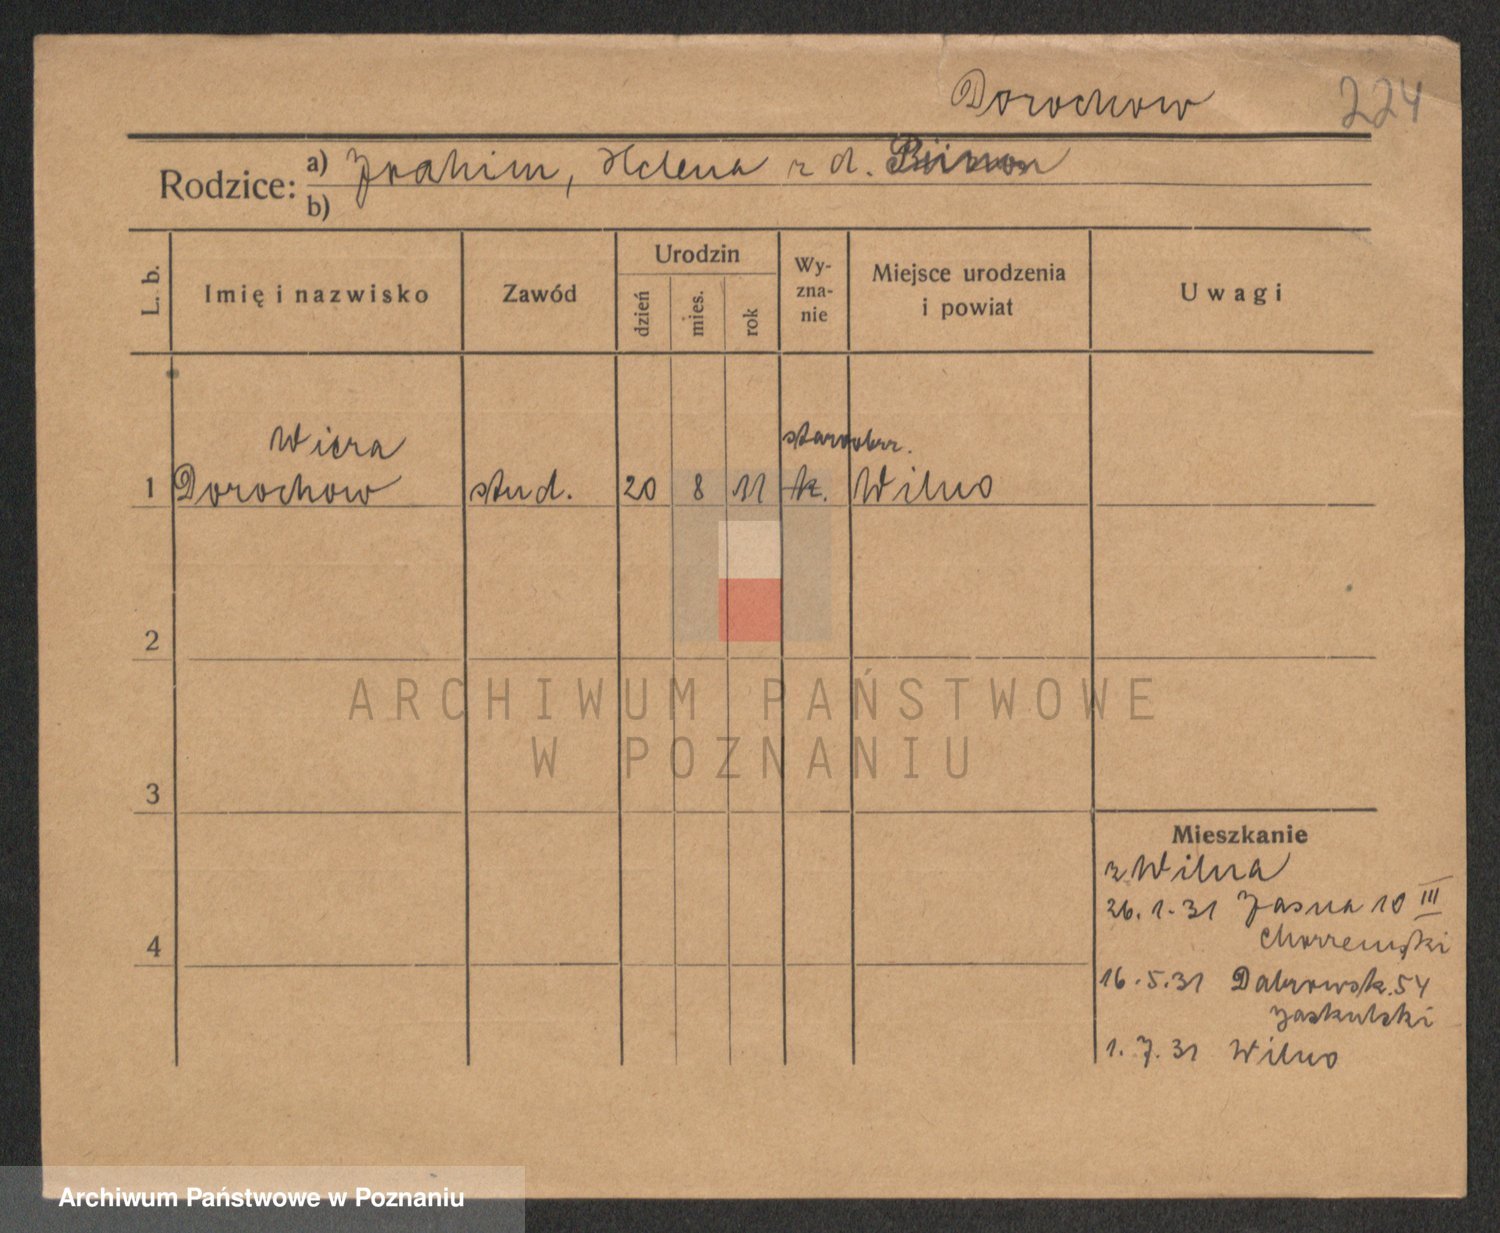 Dorochow 224
Rodzice: a) Jrahim, Helena z d.
b)
L. b.
Imię i nazwisko
Zawód
Urodzin
dzień
mies.
rok
Wy-
zna-
nie
Miejsce urodzenia
i powiat
Uwagi
Wiera
staroobrz.
1 Dorochow stud. 20 8 11 k. Wilno
2
3
4
ARCHIWUM PAŃSTWOWE
W POZNANIU
Mieszkanie
z Wilna
26. 1. 31 Jasna 10 III
Chorzemski
16. 5. 31 Dąbrowsk. 54
Jaskulski
1. 7. 31 Wilno
Archiwum Państwowe w Poznaniu